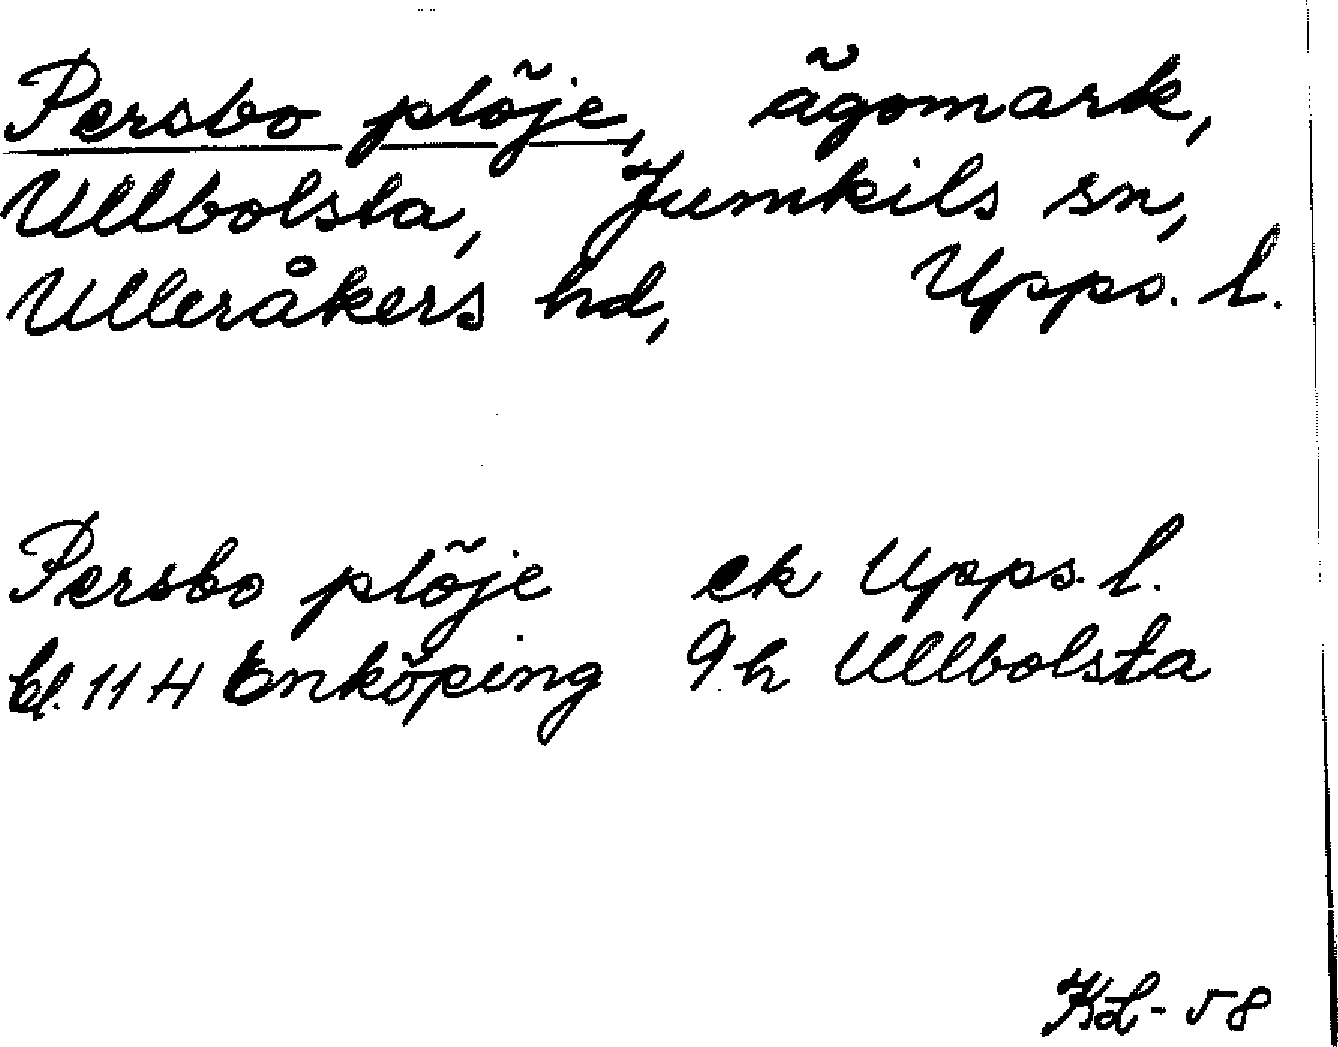 Persbo plöje, ägomark,
Ullbolsta, Jumkils sn,
Ulleråkers hd, Upps. l.
Persbo plöje ek Upps. l.
bl. 11 H Enköping 9 h Ullbolsta
KL - 58